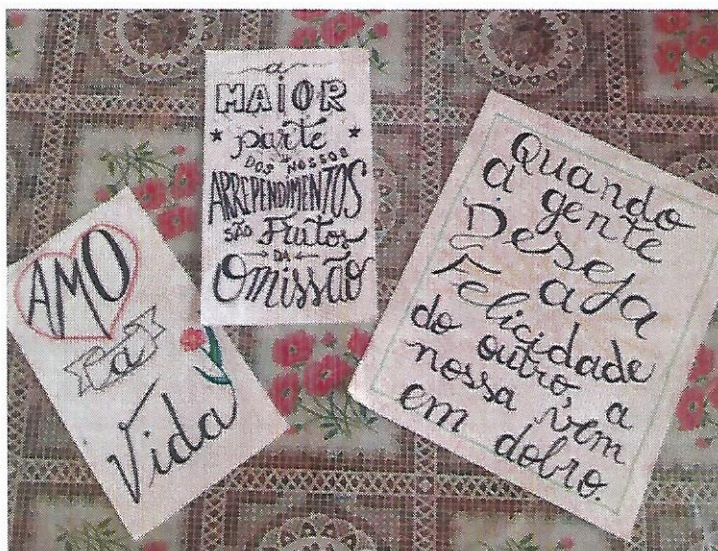 AMO
a
Vida
a
MAIOR
parte
DOS NOSSOS
ARREPENDIMENTOS
SÃO Frutos
DA
Omissão
Quando
a gente
Deseja
a
Felicidade
do outro, a
nossa vem
em dobro.